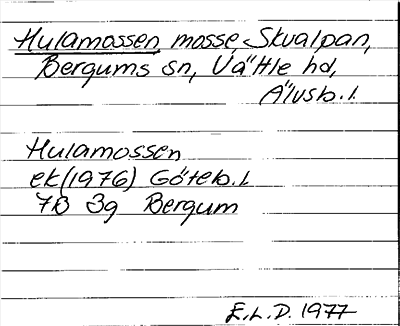 Hulamossen, mosse, Skvalpan,
Bergums sn, Vättle hd,
Älvsb. l.
Hulamossen
ek (1976) Göteb. l
7B 3g Bergum
E.L.D. 1977